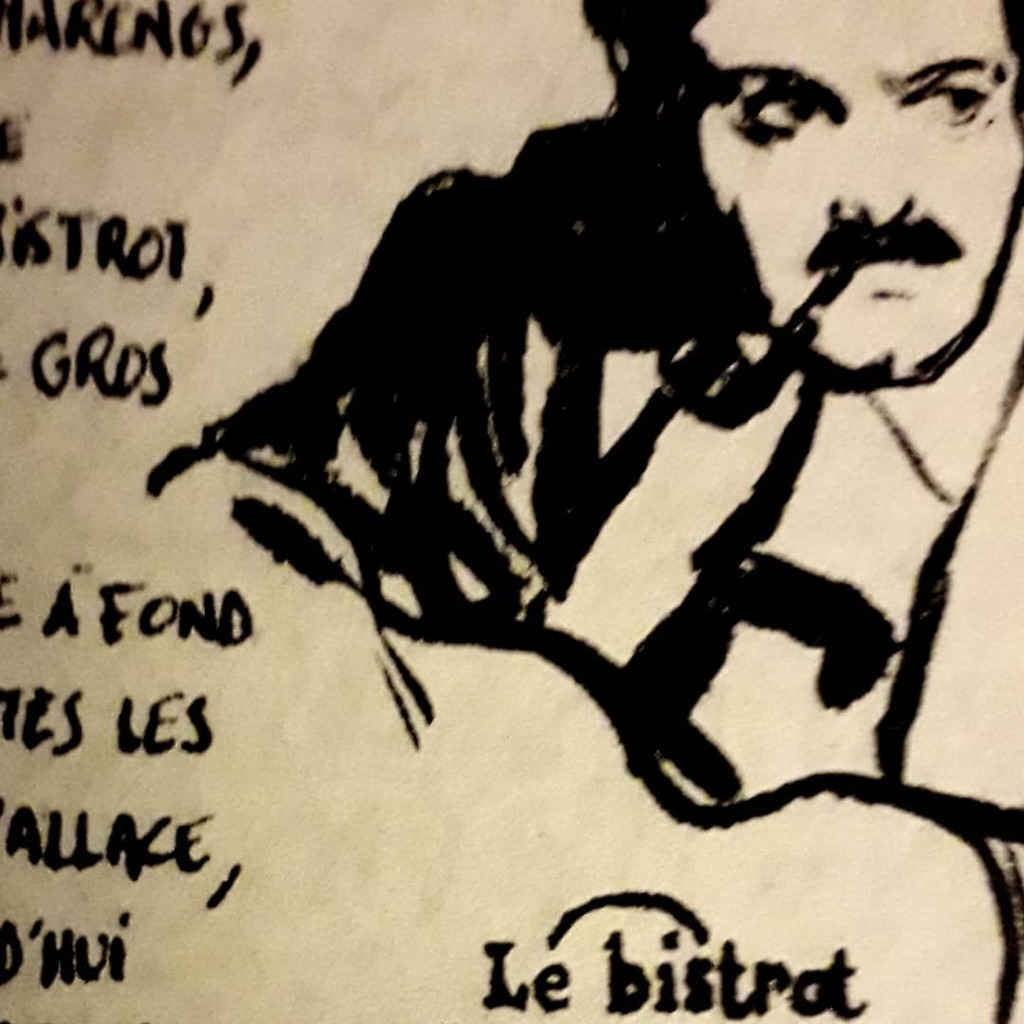 HARENGS,
E
BISTROT,
GROS
E À FOND
TES LES
WALLACE,
D'HUI
Le bistrot